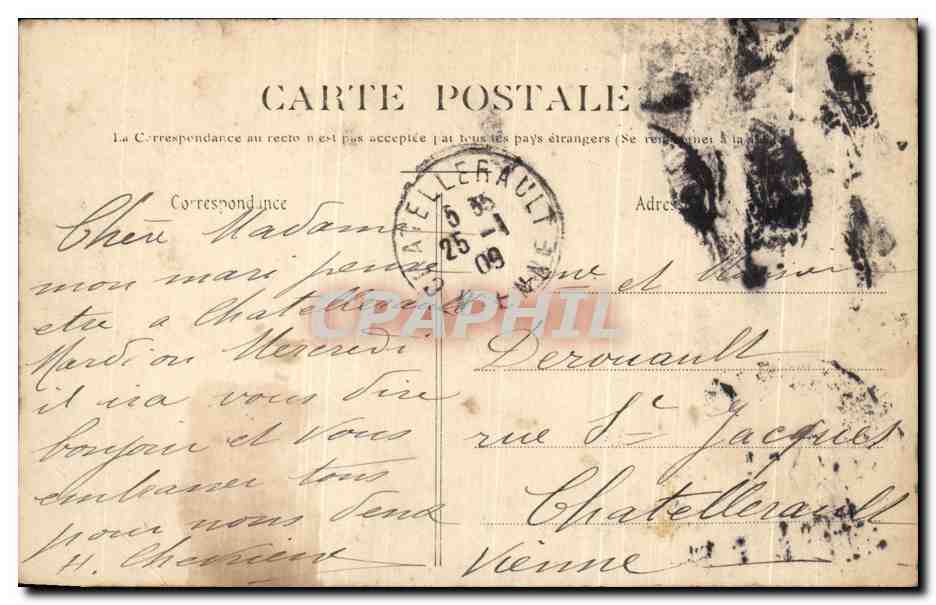 CARTE POSTALE
La Correspondance au recto n'est pas acceptée par tous les pays étrangers (Se renseigner à la
Correspondance
Adresse
CHATELLERAULT
VIENNE
6 35
25 - 7
09
Chère Madame
mon mari pense
etre a Chatellerault
Mardi ou Mercredi
il ira vous dire
bonjour et vous
embrasser tous
pour nous deux
H. Chevrieux
et
Derouault
rue St Jacques
Chatellerault
Vienne
CPAPHIL